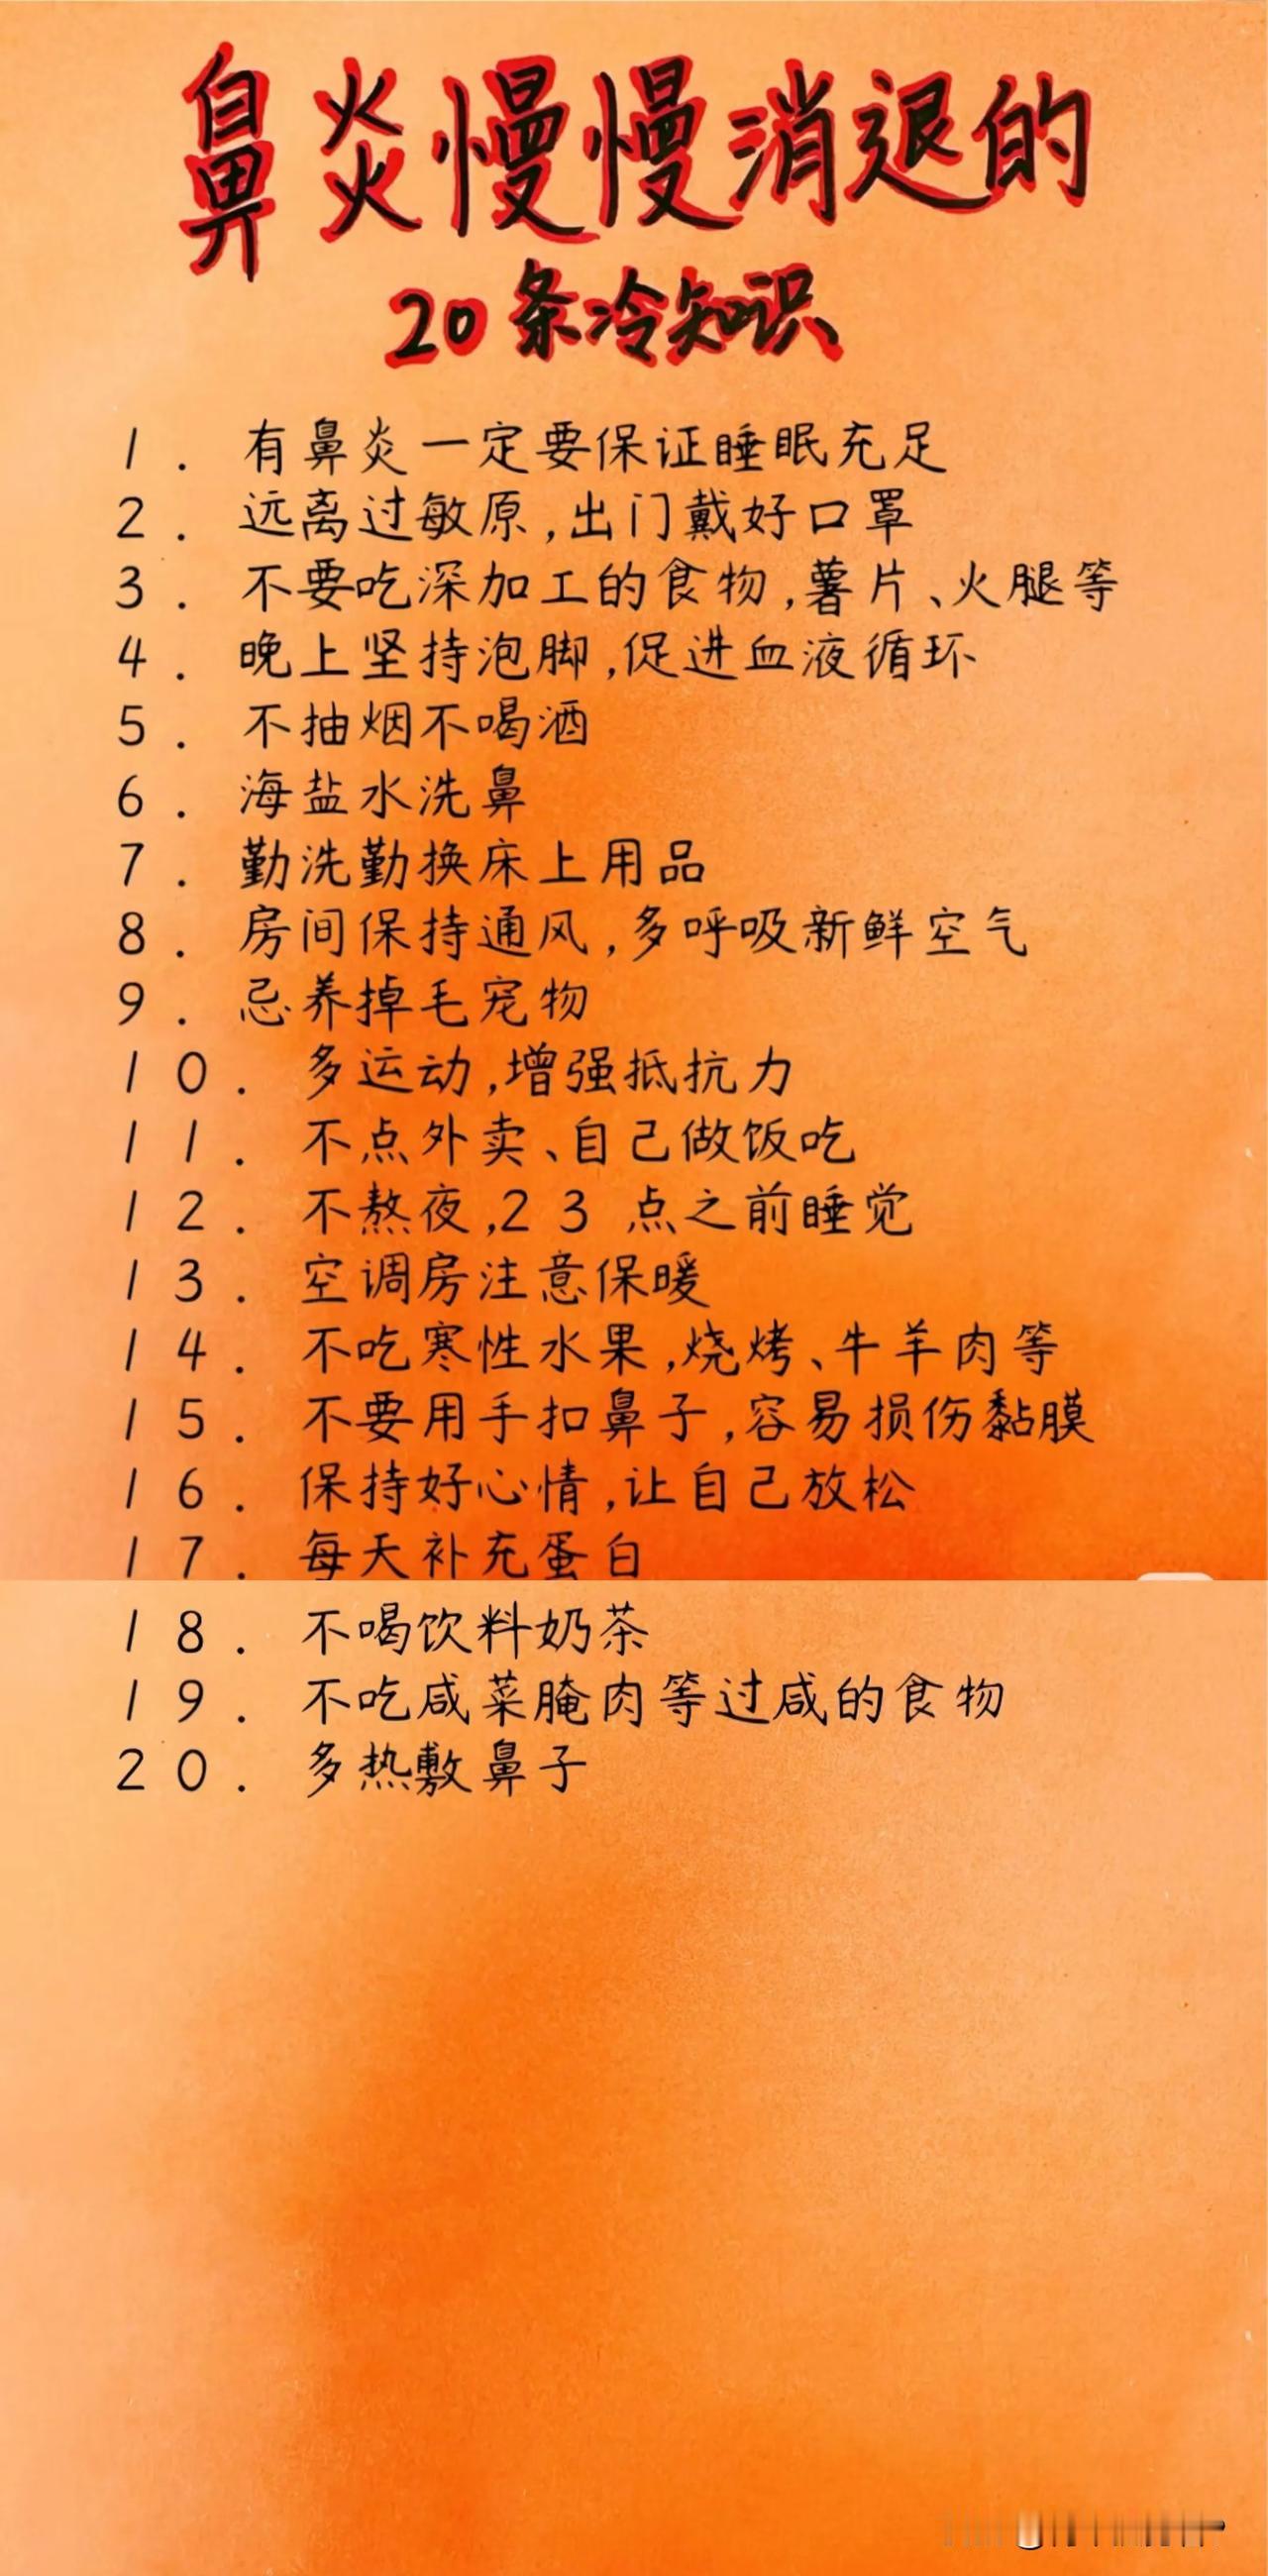 鼻炎慢慢消退的
20条冷知识
1. 有鼻炎一定要保证睡眠充足
2. 远离过敏原,出门戴好口罩
3. 不要吃深加工的食物,薯片、火腿等
4. 晚上坚持泡脚,促进血液循环
5. 不抽烟不喝酒
6. 海盐水洗鼻
7. 勤洗勤换床上用品
8. 房间保持通风,多呼吸新鲜空气
9. 忌养掉毛宠物
10. 多运动,增强抵抗力
11. 不点外卖、自己做饭吃
12. 不熬夜,23点之前睡觉
13. 空调房注意保暖
14. 不吃寒性水果,烧烤、牛羊肉等
15. 不要用手扣鼻子,容易损伤黏膜
16. 保持好心情,让自己放松
17. 每天补充蛋白
18. 不喝饮料奶茶
19. 不吃咸菜腌肉等过咸的食物
20. 多热敷鼻子